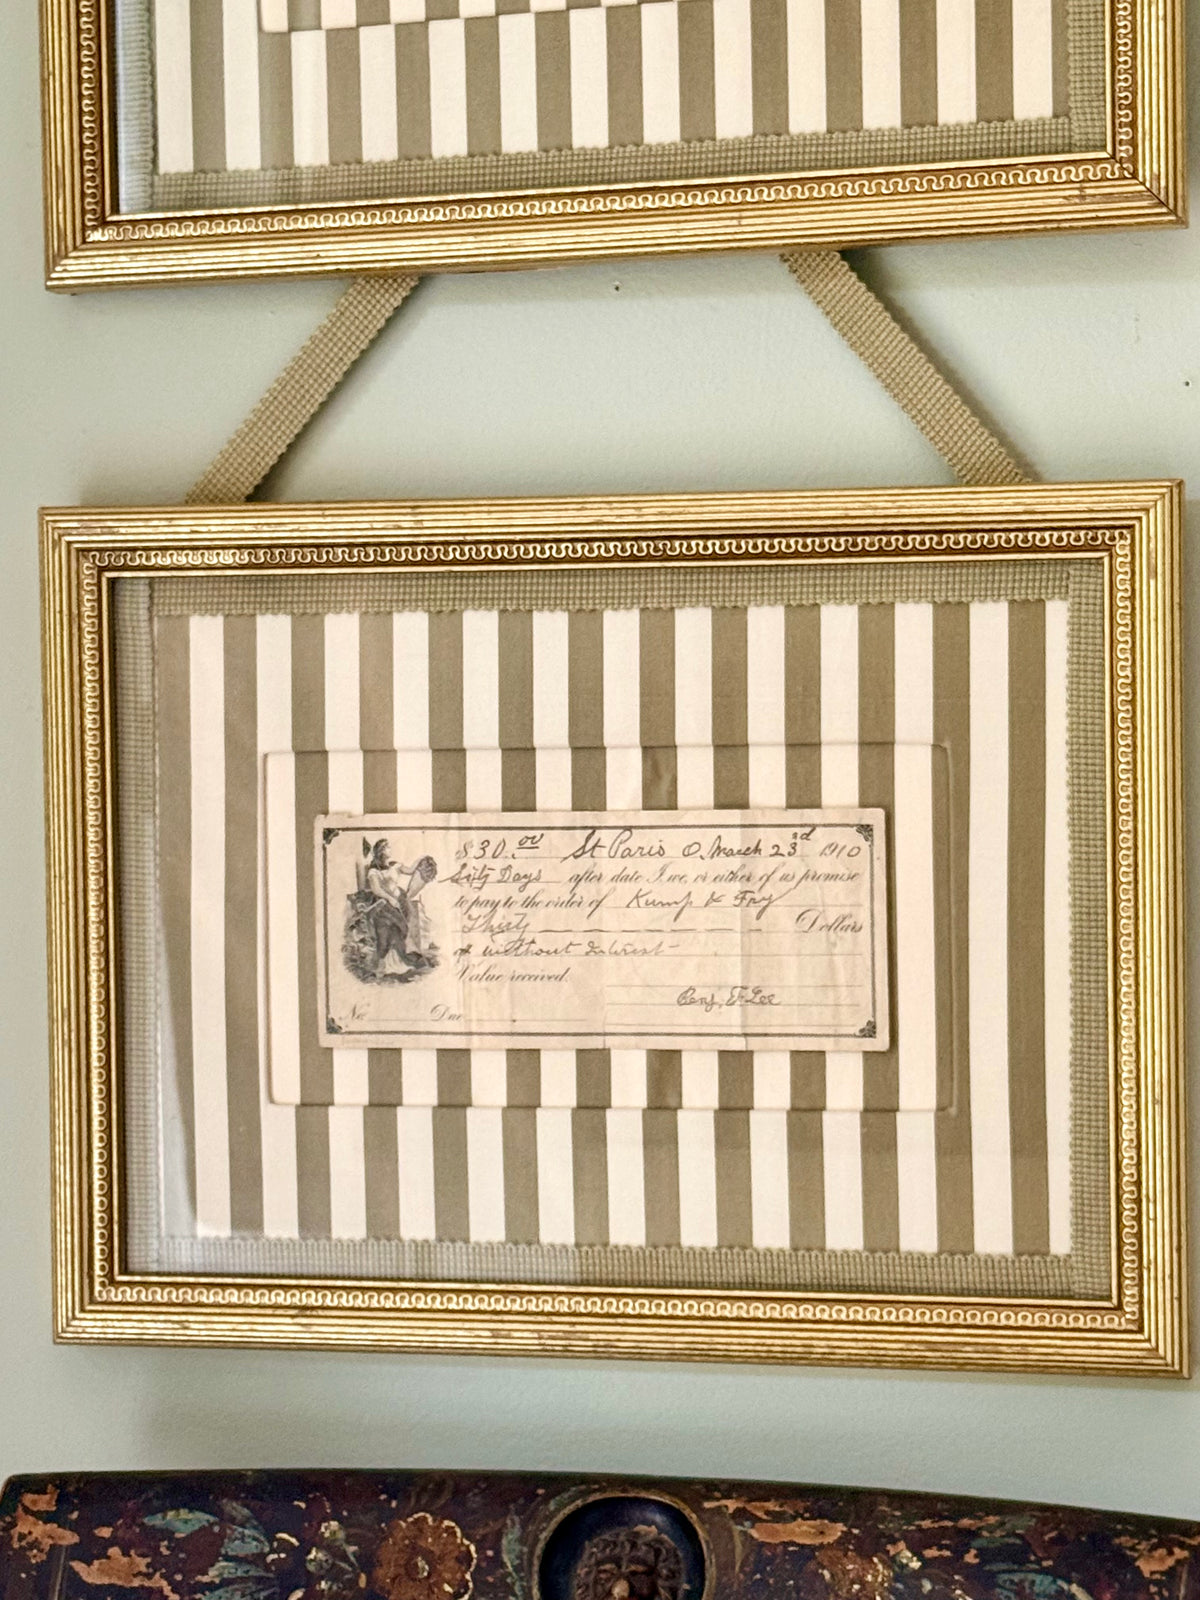 $30.00 St Paris O. March 23rd 1910
Sixty Days after date I, we, or either of us promise
to pay to the order of Kump & Fry
Thirty Dollars
without Interest
Value received.
Benj. F. Lee
No. Due